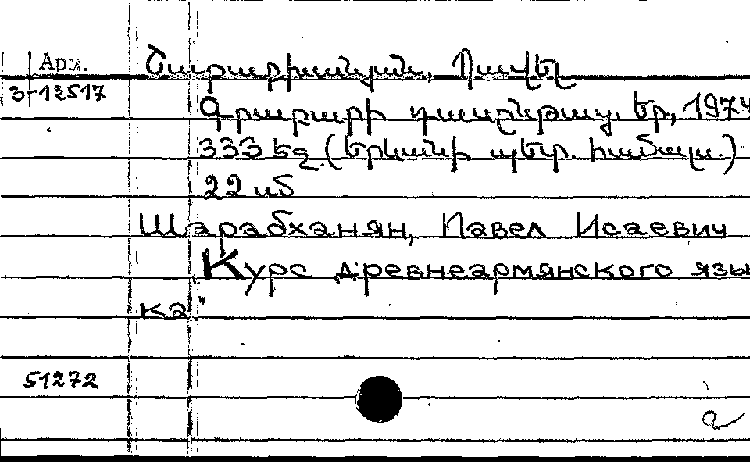 Арм.
Շարաբխանյան, Պավել
3-12517
Գրաբարի դասընթաց. Եր., 1974
333 եջ. (Երևանի պետ. համալս.)
22 սմ
Шарабханян, Павел Исаевич
Курс древнеармянского язы
ка"
51272